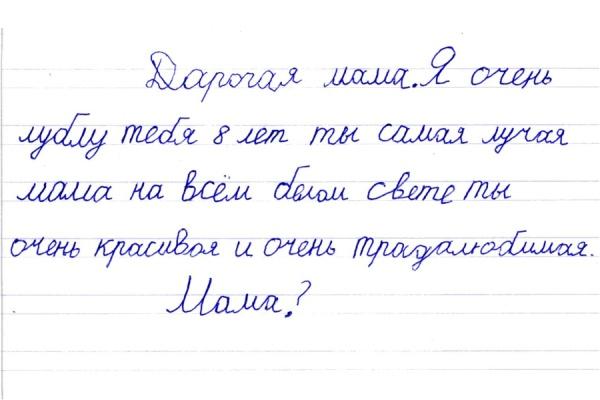 Дарогая мама. Я очень
лублу тебя 8 лет ты самая лучая
мама на всём белом свете ты
очень красивая и очень традалюбимая.
Мама.?